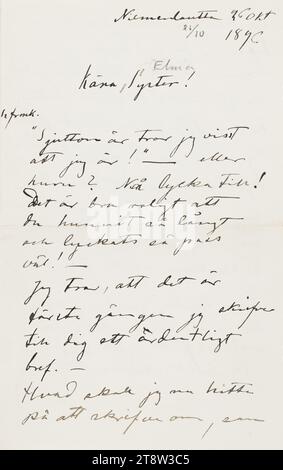 Niemenlautta 26 Okt
26/10 1896
Elma
Kära Syster!
"Sjutton år tror jag visst
att jag är!" — eller
huru? Nå lycka till!
Det är bra roligt att
du hunnit så långt
och lyckats så pass
väl! —
Jag tror, att det är
första gången jag skrifver
till dig ett ordentligt
bref. —
Hvad skall jag nu hitta
på att skrifva om, som
alamy
Image ID: 2T8W3C5
www.alamy.com